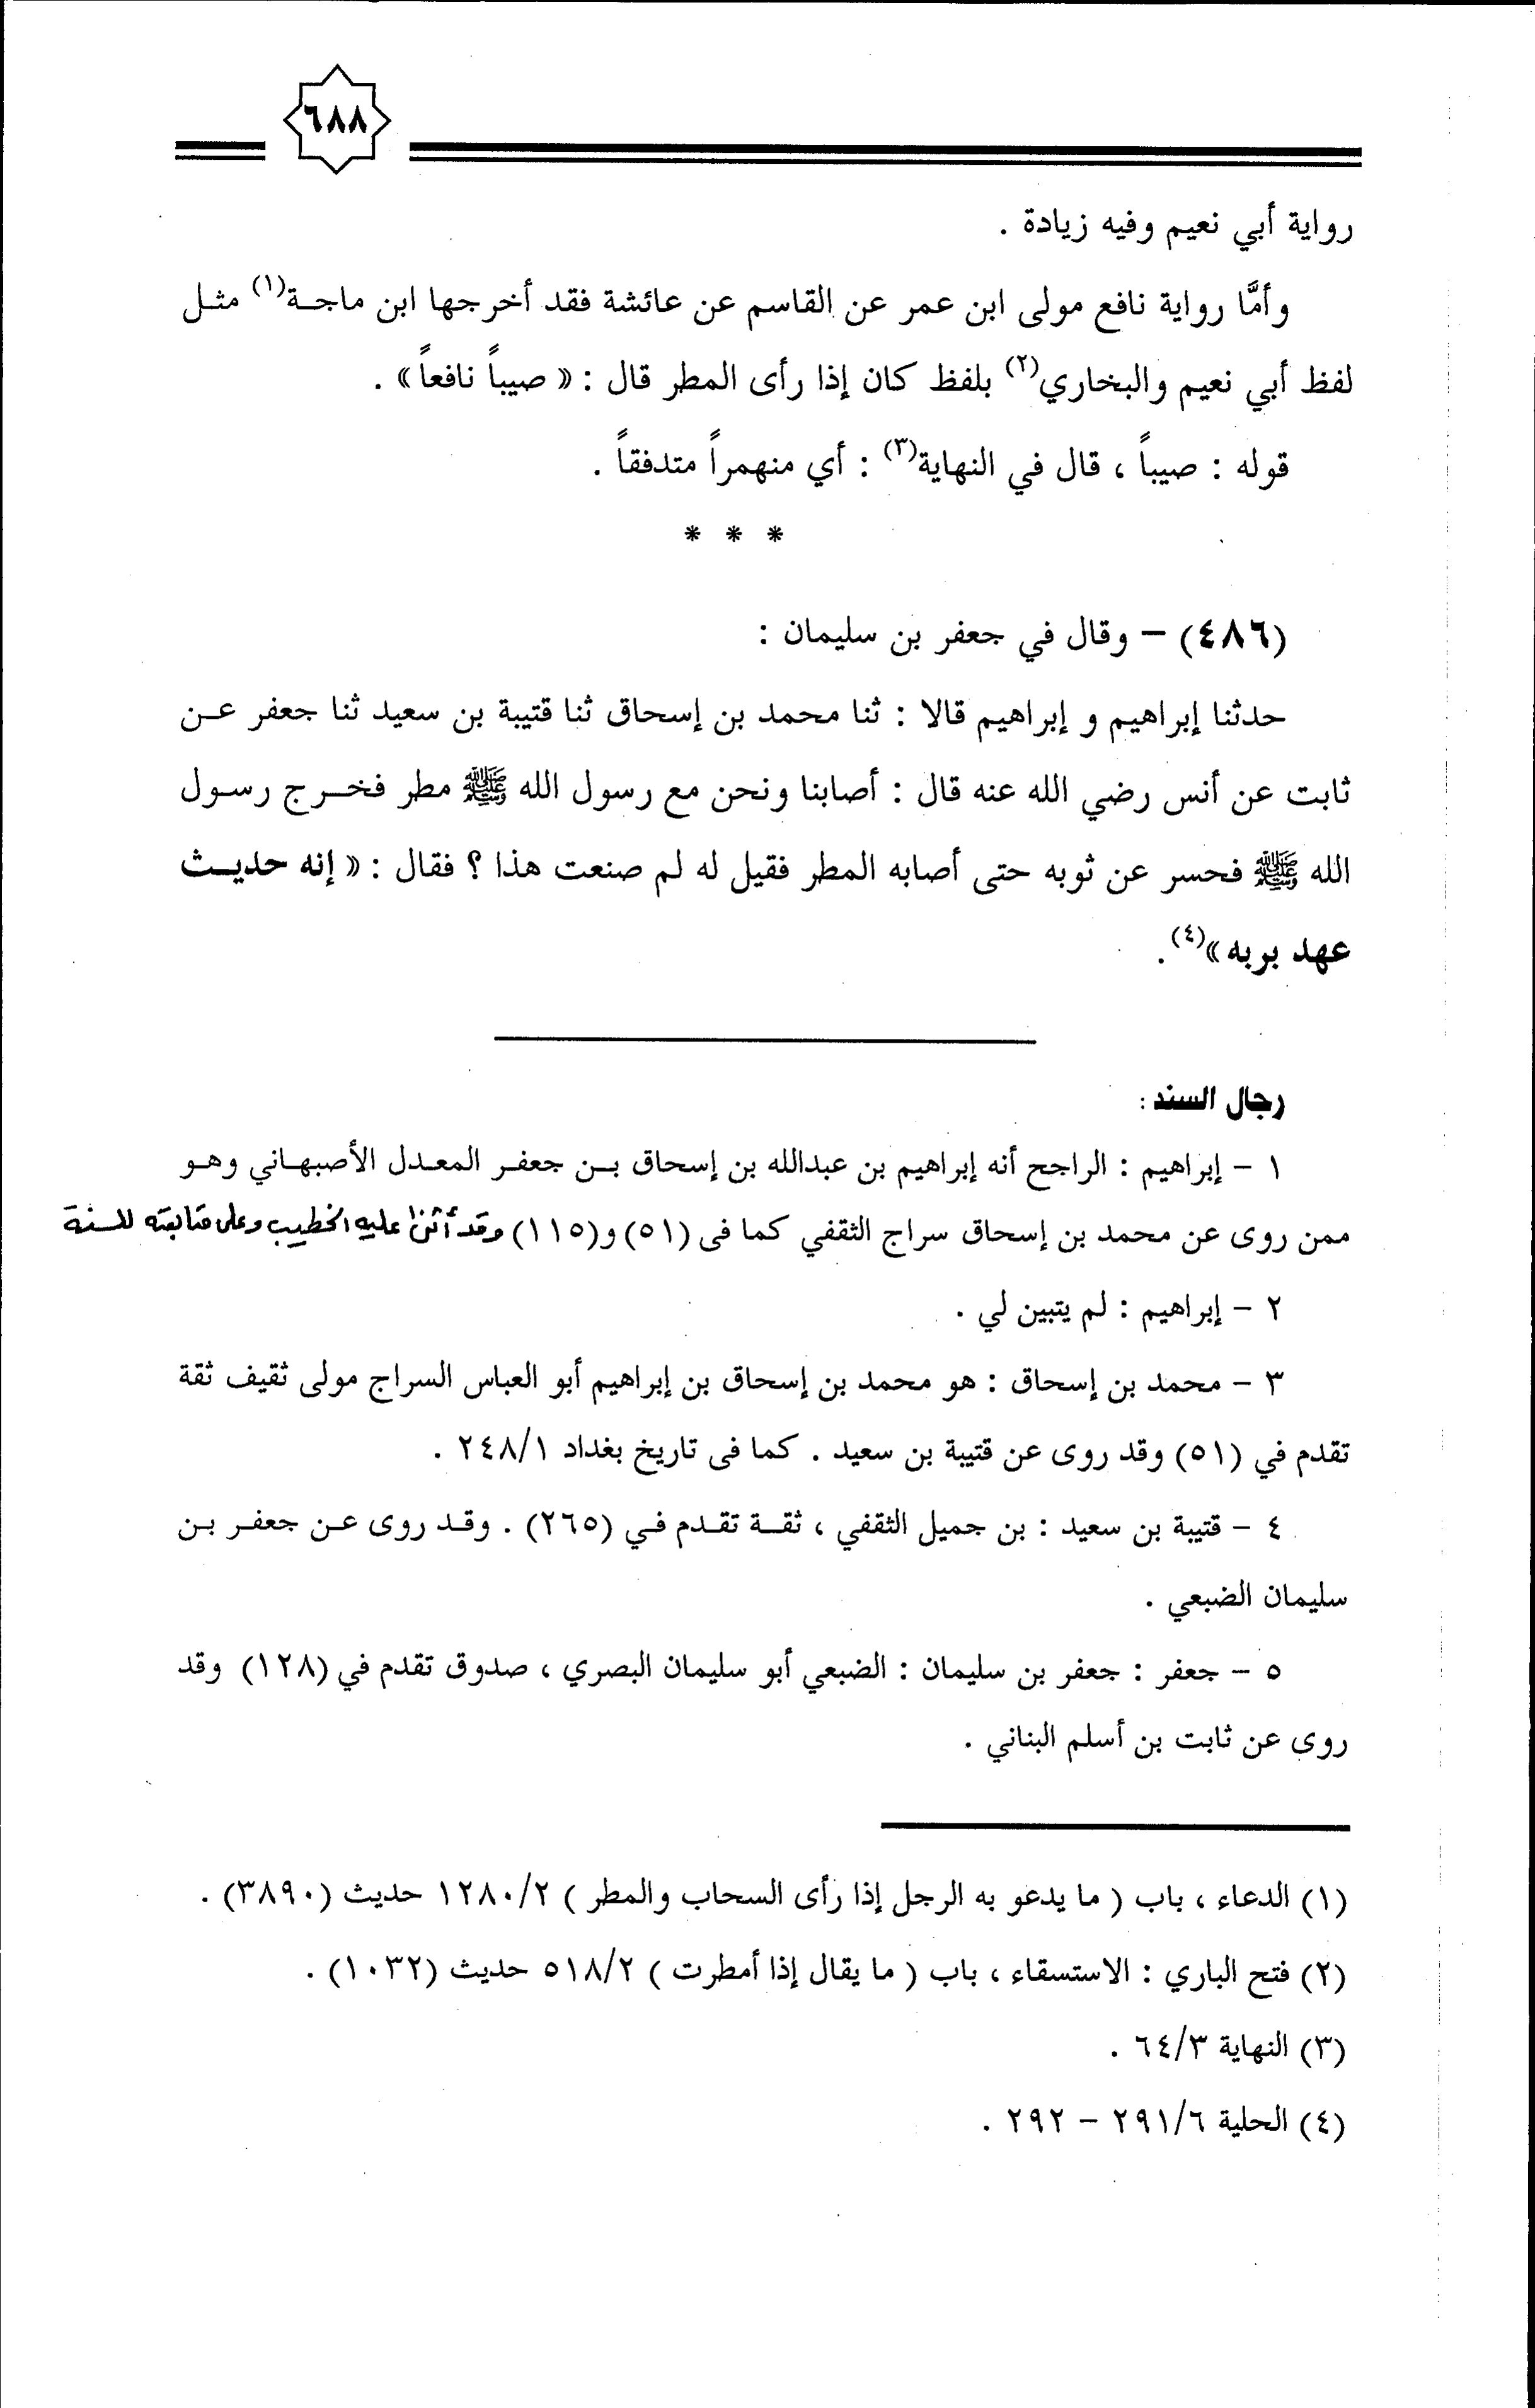 ٦٨٨
رواية أبي نعيم وفيه زيادة .
وأمَّا رواية نافع مولى ابن عمر عن القاسم عن عائشة فقد أخرجها ابن ماجـة(١) مثـل
لفظ أبي نعيم والبخاري(٢) بلفظ كان إذا رأى المطر قال : « صيباً نافعاً » .
قوله : صيباً ، قال في النهاية(٣) : أي منهمراً متدفقاً .
* * *
(٤٨٦) – وقال في جعفر بن سليمان :
حدثنا إبراهيم و إبراهيم قالا : ثنا محمد بن إسحاق ثنا قتيبة بن سعيد ثنا جعفر عـن
ثابت عن أنس رضي الله عنه قال : أصابنا ونحن مع رسول الله ﷺ مطر فخـرج رسـول
الله ﷺ فحسر عن ثوبه حتى أصابه المطر فقيل له لم صنعت هذا ؟ فقال : « إنه حديـث
عهد بربه »(٤) .
رجال السند :
١ – إبراهيم : الراجح أنه إبراهيم بن عبدالله بن إسحاق بـن جعفـر المعـدل الأصبهـاني وهـو
ممن روى عن محمد بن إسحاق سراج الثقفي كما فى (٥١) و(١١٥) وقد أثنى عليه الخطيب وعلى متابعته للسنة
٢ – إبراهيم : لم يتبين لي .
٣ – محمد بن إسحاق : هو محمد بن إسحاق بن إبراهيم أبو العباس السراج مولى ثقيف ثقة
تقدم في (٥١) وقد روى عن قتيبة بن سعيد . كما فى تاريخ بغداد ٢٤٨/١ .
٤ – قتيبة بن سعيد : بن جميل الثقفي ، ثقـة تقـدم فـي (٢٦٥) . وقـد روى عـن جعفـر بـن
سليمان الضبعي .
٥ – جعفر : جعفر بن سليمان : الضبعي أبو سليمان البصري ، صدوق تقدم في (١٢٨) وقد
روى عن ثابت بن أسلم البناني .
(١) الدعاء ، باب ( ما يدعو به الرجل إذا رأى السحاب والمطر ) ١٢٨٠/٢ حديث (٣٨٩٠) .
(٢) فتح الباري : الاستسقاء ، باب ( ما يقال إذا أمطرت ) ٥١٨/٢ حديث (١٠٣٢) .
(٣) النهاية ٦٤/٣ .
(٤) الحلية ٢٩١/٦ – ٢٩٢ .